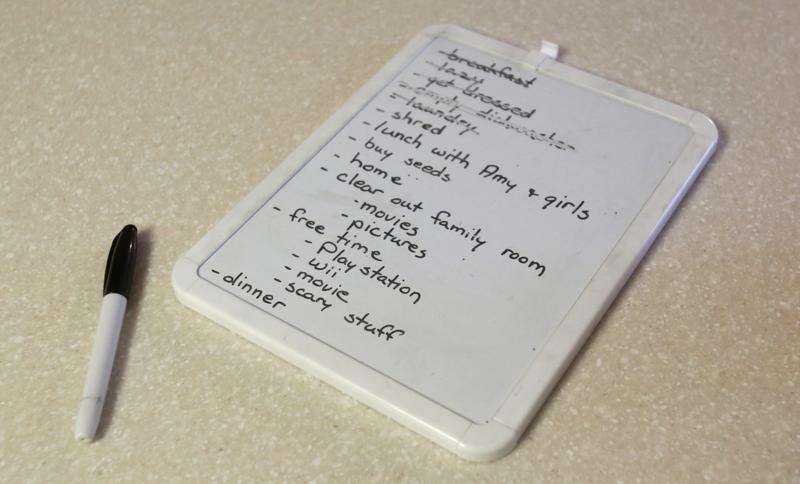 - breakfast
- lazy
- get dressed
- empty dishwasher
- laundry
- shred
- lunch with Amy & girls
- buy seeds
- home
- clear out family room
- movies
- pictures
- free time
- play station
- wii
- movie
- scary stuff
- dinner